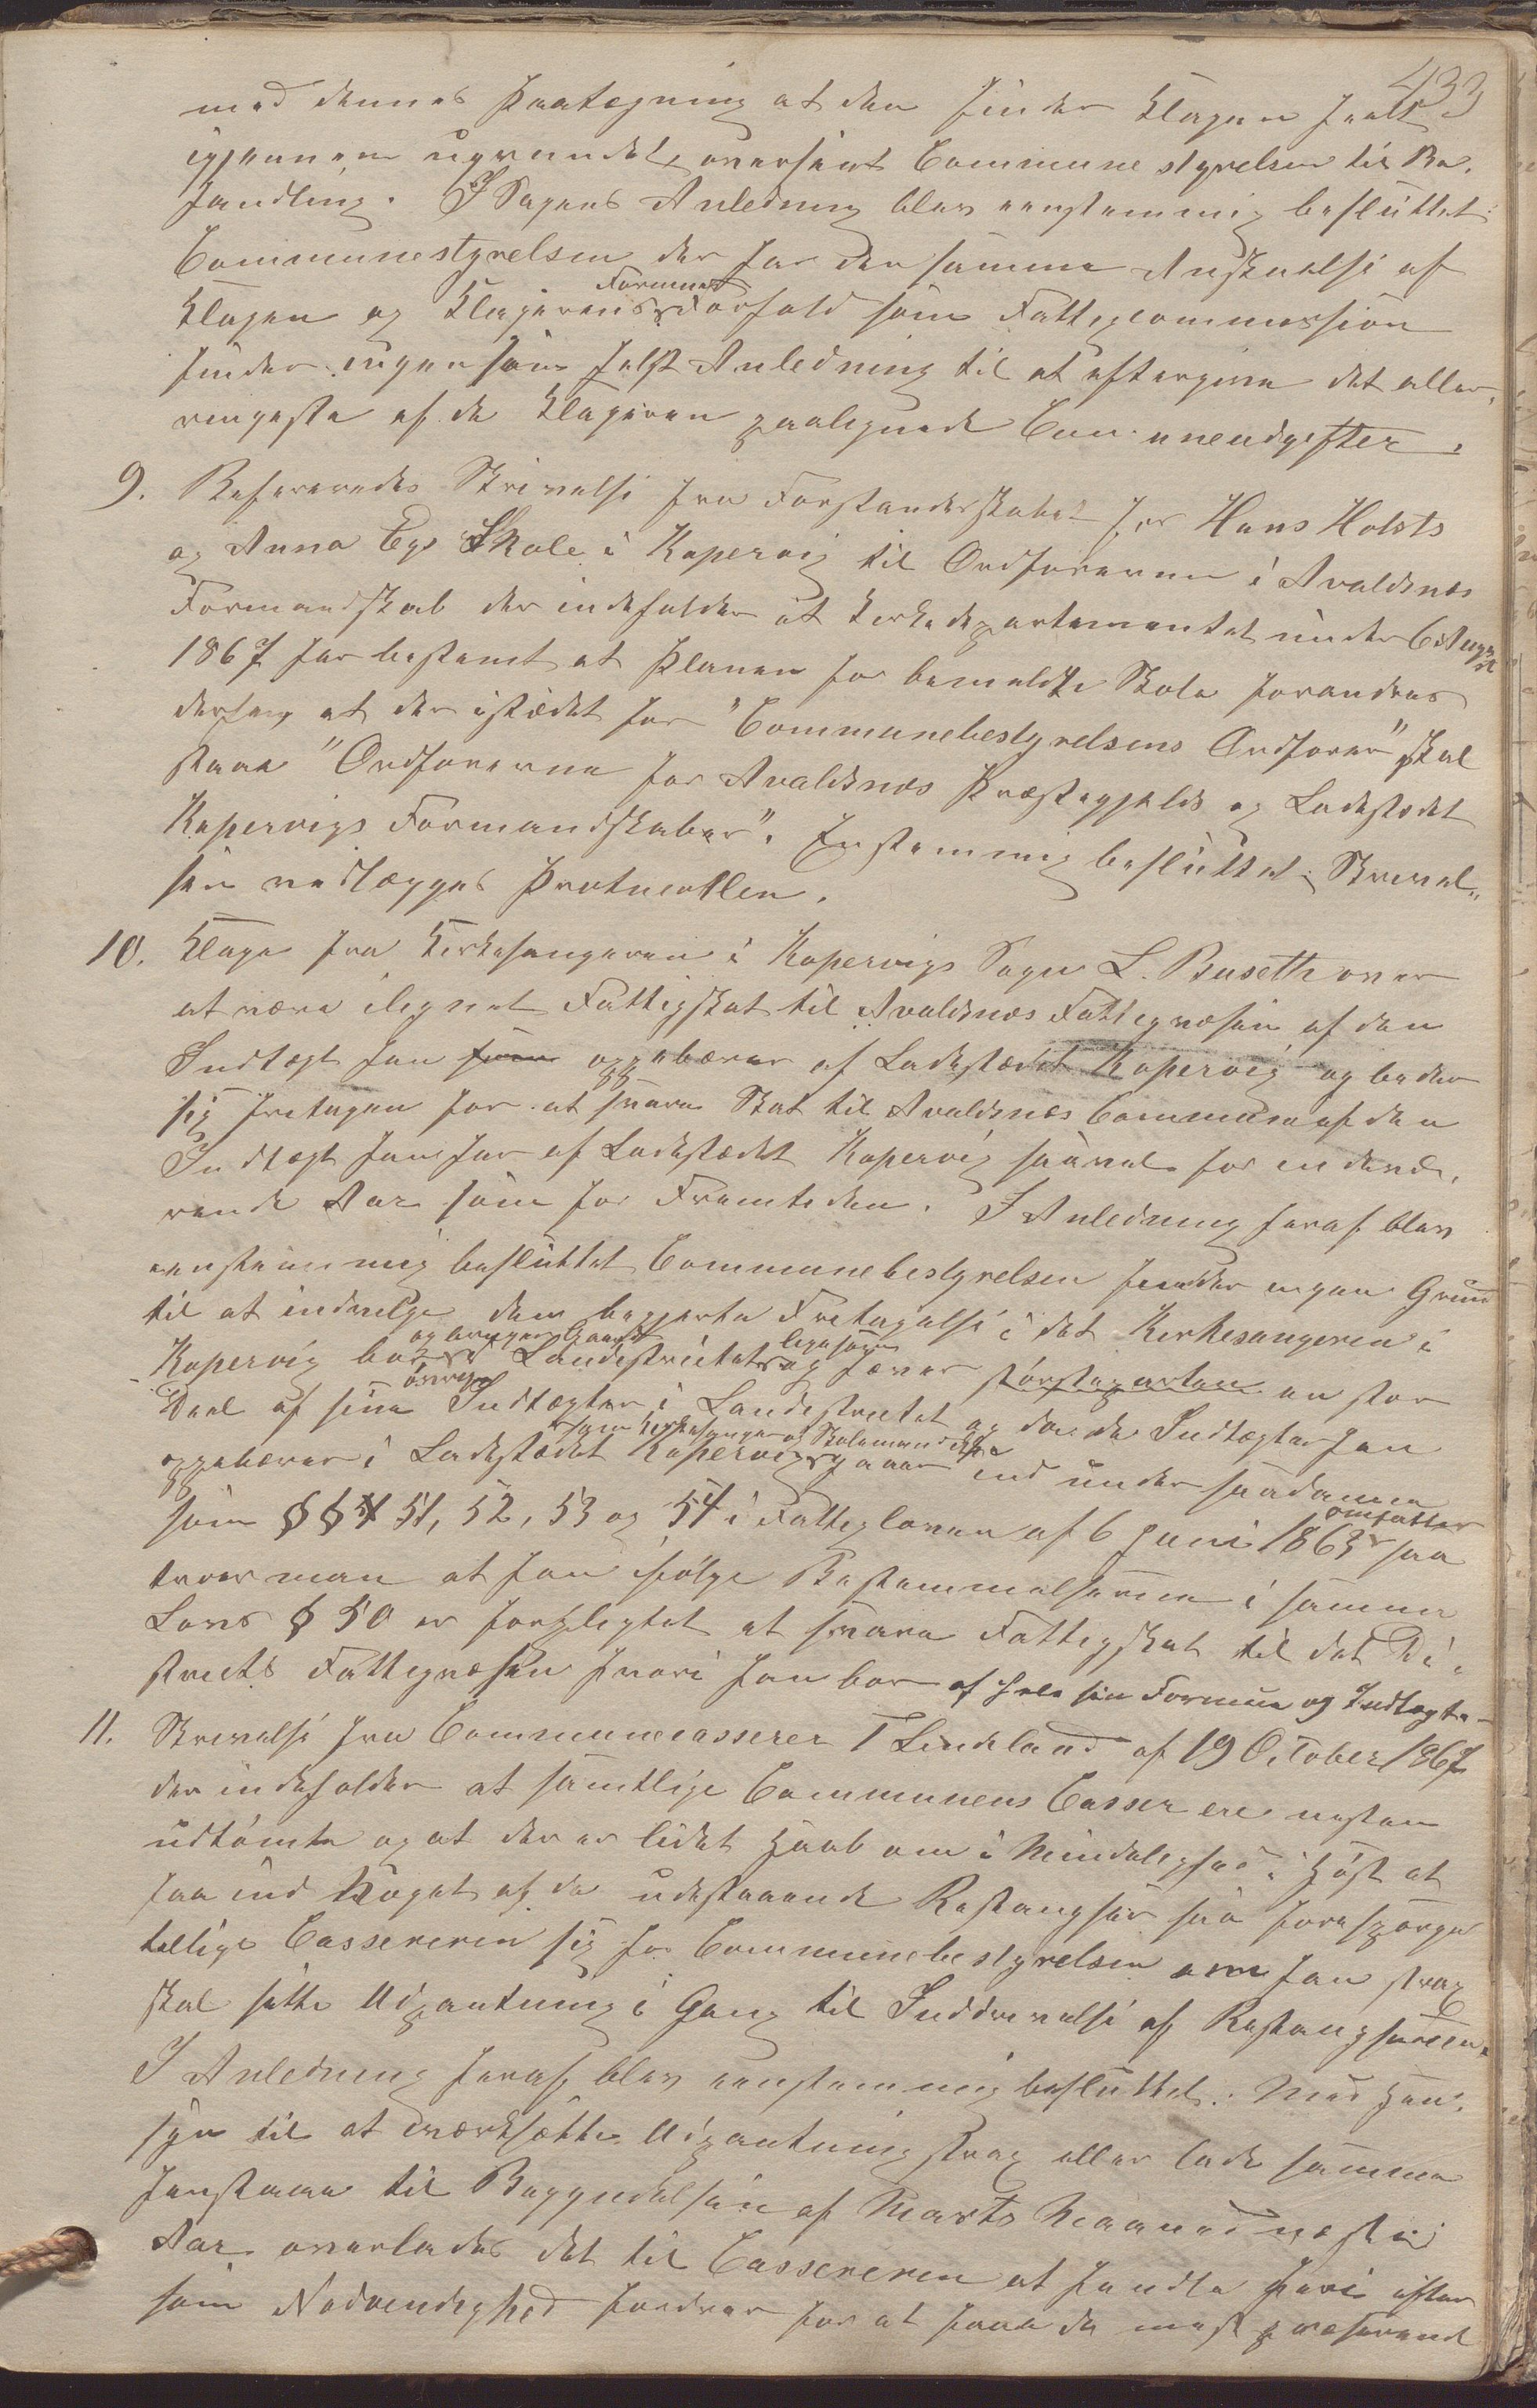 433
med dennes Paategning at den finder Klagen heelt
igjennem ugrundet, oversent Communestyrelsen til Be-
handling. I Sagens Anledning blev eenstemmig besluttet:
Communestyrelsen der har den samme Anskuelse af
Klagen og Klagerens Formues Forhold som Fattigcommission
finder ingensom helst Anledning til at eftergive det aller-
ringeste af de Klageren paalignede Communeudgifter.
9. Refereredes Skrivelse fra Forstanderskabet for Hans Holsts
og Anna Egs Skole i Kopervig til Ordføreren i Avaldsnes
Formandskab der indeholder at Kirkedepartementet under 6 August
1867 har bestemt at Planen for bemeldte Skole forandres
derhen at der istædet for "Communebestyrelsens Ordfører" skal
staae "Ordførerne for Avaldsnes Præstegjelds og Ladestedet
Kopervigs Formandskaber". Enstemmig besluttet: Skrivel-
sen vedlægges Protocollen.
10. Klage fra Kirkesangeren i Kopervigs Sogn L. Buseth over
at være ilignet Fattigskat til Avaldsnes Fattigvæsen af den
Indtægt han oppebærer af Ladestædet Kopervig og beder
sig fritagen for at svare Skat til Avaldsnes Commune af den
Indtægt han har af Ladestædet Kopervig saavel for indevæ-
rende Aar som for Fremtiden. I Anledning heraf blev
eenstemmig besluttet Communebestyrelsen finder ingen Grund
til at indvilge den begjerte Fritagelse i det Kirkesangeren i
Kopervig boer og bruger Gaard i Landdistrictet og ligesom hæver størsteparten en stor
Deel af sine øvrige Indtægter i Landdistrictet og da de Indtægter han
oppebærer i Ladestædet Kopervig som Kirkesanger og Skolemand ikke gaaer ind under saadanne
som §§ 51, 52, 53 og 54 i Fattigloven af 6 Juni 1863 omfatter saa
troer man at han ifølge Bestemmelserne i samme
Lovs § 50 er forpligtet at svare Fattigskat til det Di-
stricts Fattigvæsen hvori han bor af hele sin Formue og Indtægt.
11. Skrivelse fra Communecasserer T Lindeland af 19 October 1867
der indeholder at samtlige Communens Casser ere nesten
udtømte og at der er lidet Haab om i Mindelighed i Høst at
faa ind Noget af de udestaaende Restangser saa forespørger
tillige Cassereren sig for Communebestyrelsen om han strax
skal sætte Udpantning i Gang til Inddrivelse af Restangserne.
I Anledning heraf blev eenstemmig besluttet: Med Hen-
syn til at iværksætte Udpantning strax eller lade samme
henstaae til Begyndelsen af Marts Maaned næste
Aar overlades det til Cassereren at handle heri efter
som Nødvendighed fordrer for at faae de mest presserende